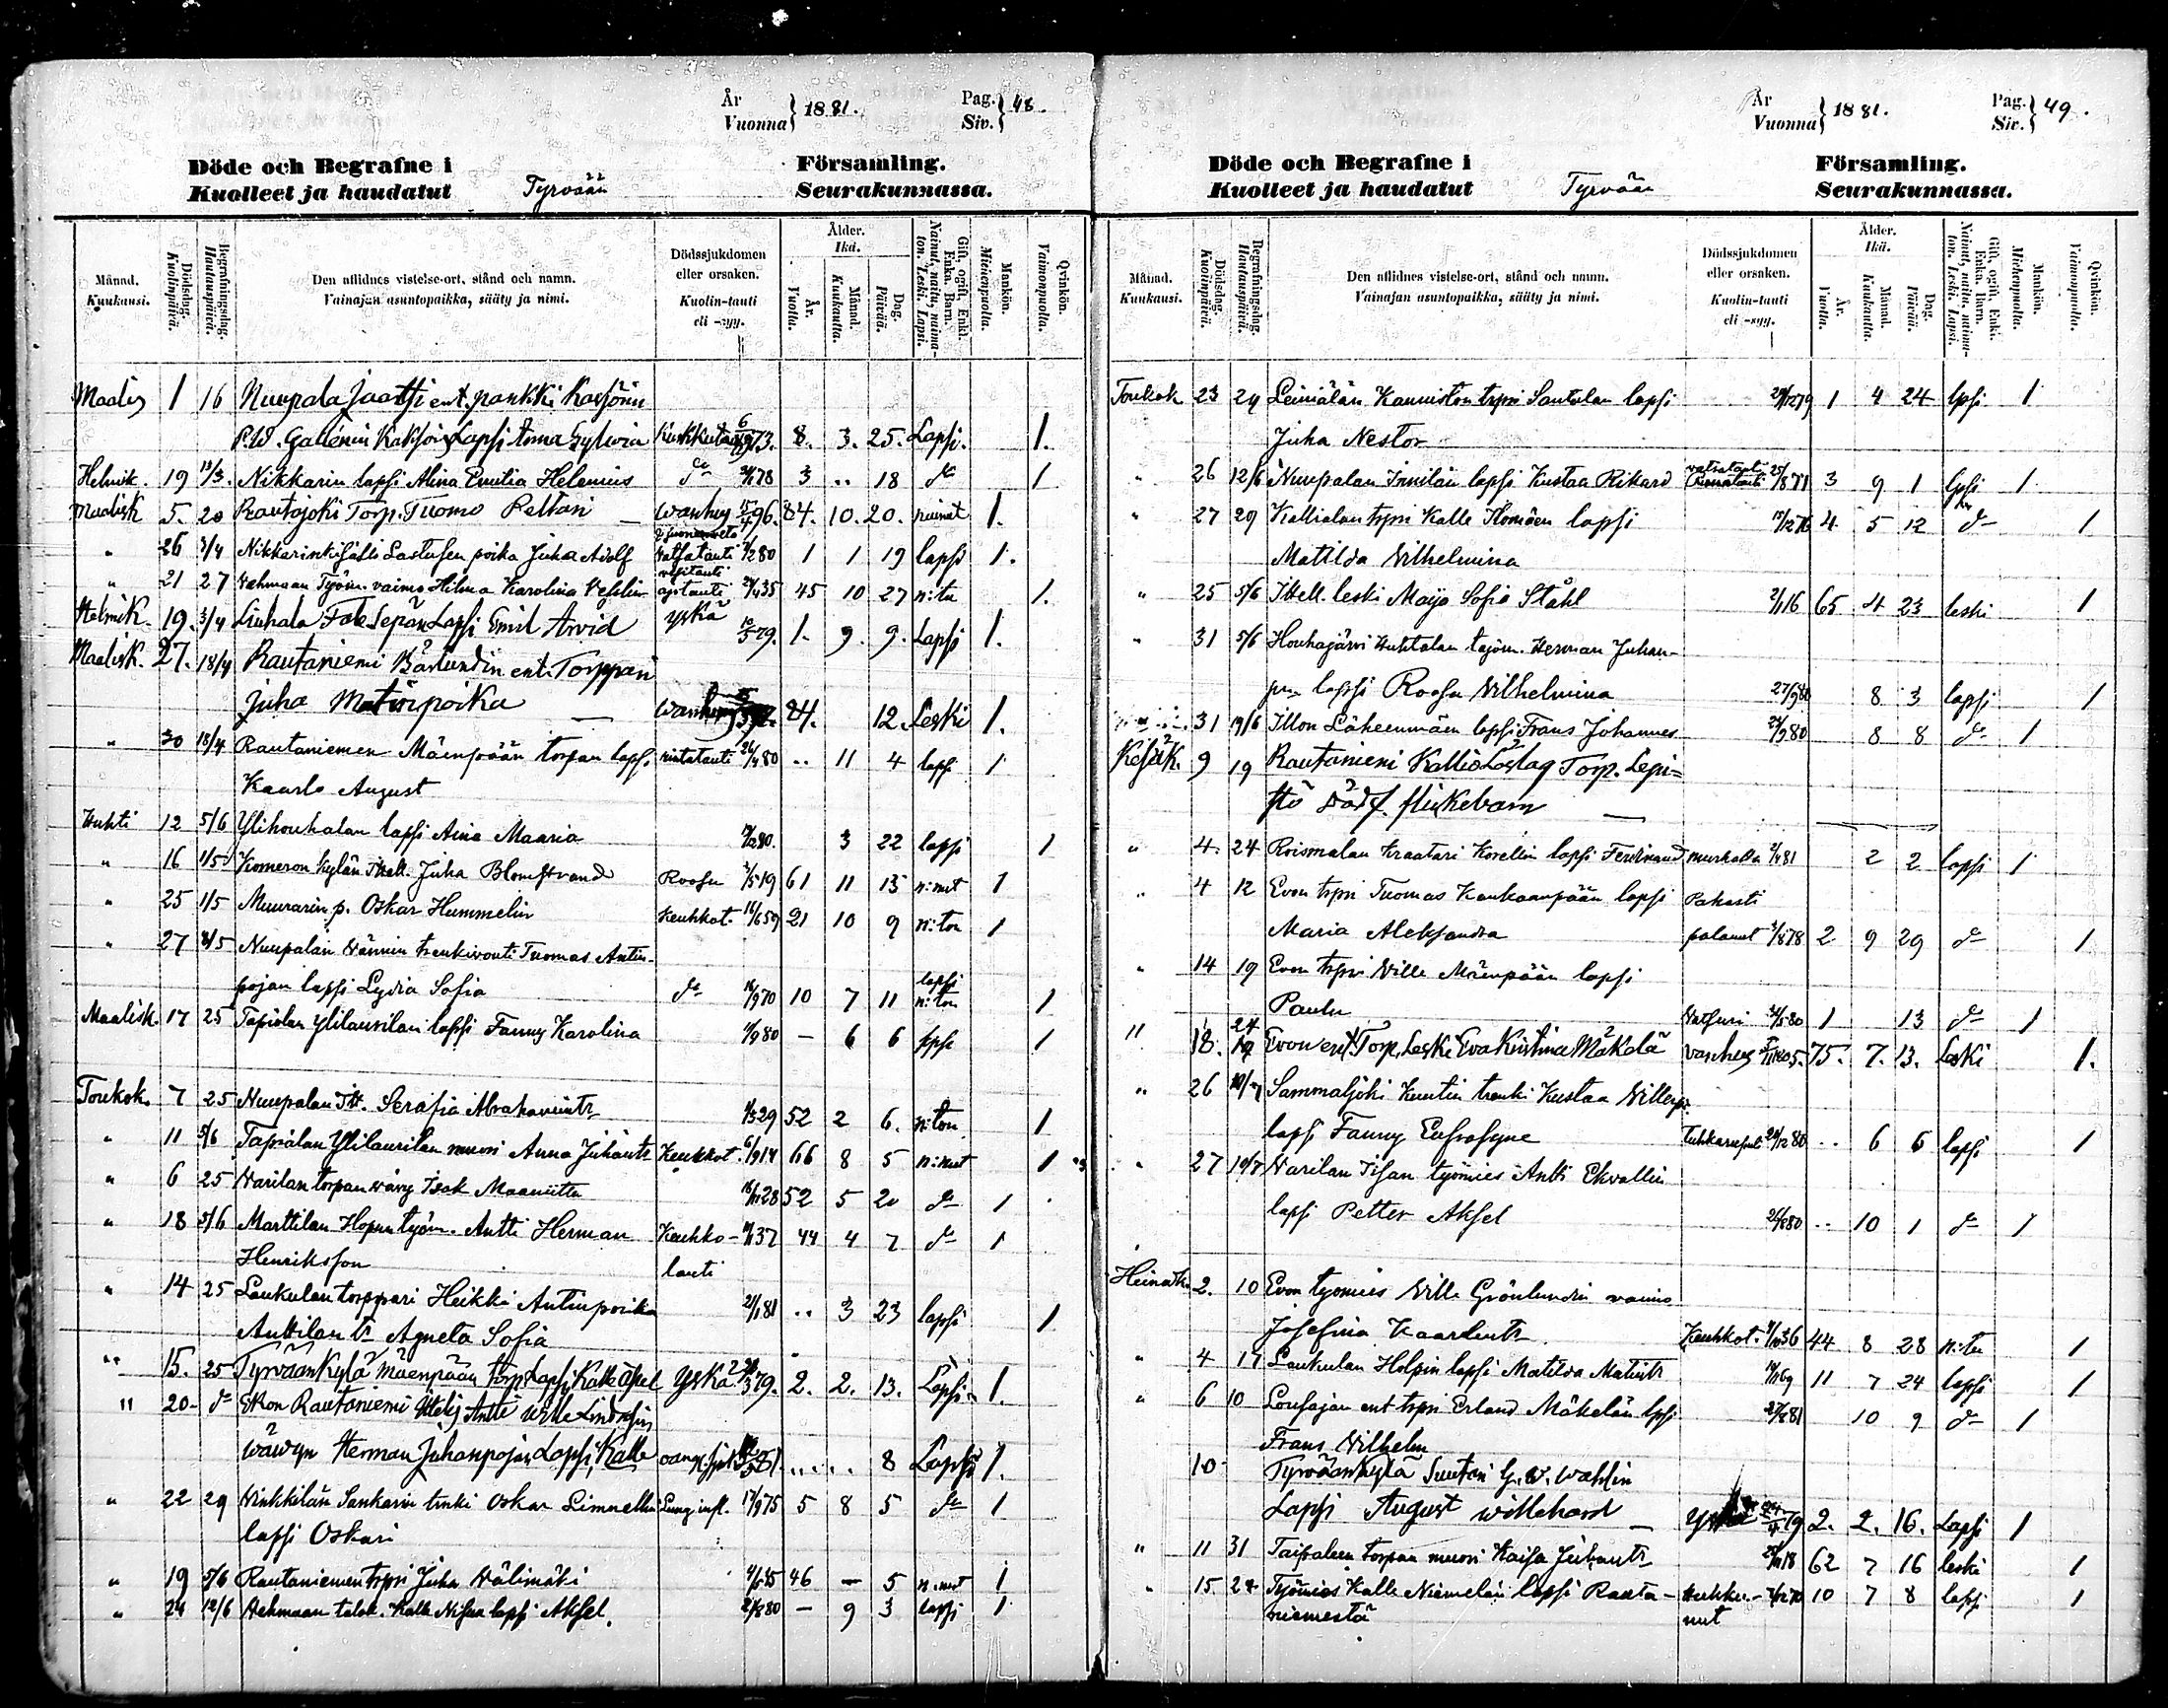 År
Vuonna } 1881. Pag. Siv. } 48.
Döde och Begrafne i Församling.
Kuolleet ja haudatut Tyrvään Seurakunnassa.
Månad. Kuukausi. Dödsdag. Kuolinpäivä. Begrafningsdag. Hautauspäivä. Den aflidnes vistelse-ort, stånd och namn. Vainajan asuntopaikka, sääty ja nimi. Dödssjukdomen eller orsaken. Kuolin-tauti eli -syy. Ålder. Ikä. År. Vuotta. Månad. Kuukautta. Dag. Päivää. Gift, ogift, Enkl. Enka. Barn. Nainut, naitu, naimaton. Leski. Lapsi. Mankön. Miehenpuolta. Qvinkön. Vaimonpuolta.
Maalis 1 16 Nuupala Jaatsi ent. pankki Kasöörin
P.W. Gallénin Kaksois Lapsi toma Sylwia 8. 3. 25. Lapsi. 1.
Helmik. 19 13/3. Nikkarin lapsi Alina Emilia Helenius do 78 3 .. 18 do 1
Maalisk 5. 20 Rautajoki Torp. Tuomo Peltari — wanhus 96. 84. 10. 20. nainut 1.
" 26 3/4 Nikkarinkisälli Lastusen poika Juha Adolf Vatsatauti 80 1 1 19 lapsi 1.
" 21 27 Vehmaan Työm. vaimo Hilma Karolina 35 45 10 27 n:tu 1.
Helmik. 19. 3/4 Liuhala Sepän Lapsi Emil Arvid yskä 79. 1. 9. 9. Lapsi 1.
Maalisk. 27. 18/4 Rautaniemi ent. Torppari
Juha Matinpoika — Wanhus 84. 12 Leski 1.
" 30 18/4 Rautaniemen Mäenpään torpan lapsi rintatauti 26/4 80 .. 11 4 lapsi 1
Kaarlo August
Huhti 12 5/6 Ylihouhalan lapsi Aina Maaria 80. 3 22 lapsi 1
" 16 1/5 Komeron kylän Itsell. Juha Blomstrand Roosu 3/5 19 61 11 13 n:nut 1
" 25 1/5 Muurarin p. Oskar Hummelin Keuhkot. 16/6 59 21 10 9 n:ton 1
" 27 8/5 Nuupalan Männin trenkivouti Tuomas Antin-
pojan lapsi Lydia Sofia do 16/9 70 10 7 11 lapsi n:ton 1
Maalisk. 17 25 Tapiolan Ylilaurilan lapsi Fanny Karolina 11/9 80 — 6 6 lapsi 1
Toukok. 7 25 Nuupalan Itt. Serafia Abrahamintr 1/3 29 52 2 6. n:ton 1
" 11 5/6 Tapiolan Ylilaurilan muori Anna Juhantr Keuhkot. 6/9 14 66 8 5 n:nut 1
" 6 25 Varilan torpan vävy Isak Maaniittu 16/11 28 52 5 20 do 1
" 18 5/6 Marttilan Hopun työm. Antti Herman Keuhko- 11/1 37 44 4 7 do 1
Henriksson tauti
" 14 25 Laukulan torppari Heikki Antinpoika 21/1 81 .. 3 23 lapsi 1
Anttilan tr Agneta Sofia
" 15. 25 Tyrväänkylä Mäenpään torp. Lapsi Kalle Aksel Yskä 79. 2. 2. 13. Lapsi 1.
" 20. do Ekon Rautaniemi Ittelis Antti Wille
Wäwyn Herman Juhanpojan Lapsi, Kalle 81. ... 8 Lapsi 1.
" 22 29 Vinkkilän Sankarin trenki Oskar Limnellin Lung infl. 17/9 75 5 8 5 do 1
lapsi Oskari
" 19 5/6 Rautaniemen trpri Juha Välimäki 45 46 — 5 n:nut 1
" 24 12/6 Vehmaan talok. Kalle Nissun lapsi Aksel. 21/8 80 — 9 3 lapsi 1
År
Vuonna } 1881. Pag. Siv. } 49.
Döde och Begrafne i Församling.
Kuolleet ja haudatut Tyrvään Seurakunnassa.
Månad. Kuukausi. Dödsdag. Kuolinpäivä. Begrafningsdag. Hautauspäivä. Den aflidnes vistelse-ort, stånd och namn. Vainajan asuntopaikka, sääty ja nimi. Dödssjukdomen eller orsaken. Kuolin-tauti eli -syy. Ålder. Ikä. År. Vuotta. Månad. Kuukautta. Dag. Päivää. Gift, ogift, Enkl. Enka. Barn. Nainut, naitu, naimaton. Leski. Lapsi. Mankön. Miehenpuolta. Qvinkön. Vaimonpuolta.
Toukok 23 29 Leiniälän Kanniston trpri Santalan lapsi 29/12 79 1 4 24 lpsi 1
Juha Nestor
" 26 12/6 Nuupalan Innilän lapsi Kustaa Rikard vatsatauti 25/8 77 3 9 1 lpsi 1
" 27 29 Kallialan trpri Kalle Ilomäen lapsi 15/12 76 4 5 12 do 1
Matilda Vilhelmina
" 25 5/6 Itsell. leski Maija Sofia Ståhl 2/1 16 65 4 23 leski 1
" 31 5/6 Houhajärvi Huhtalan työm. Herman Juhan-
pn lapsi Roosa Vilhelmina 27/9 80 8 3 lapsi 1
31 19/6 Illon Läheenmäen lapsi Frans Johannes 23/9 80 8 8 do 1
Kesäk. 9 19 Rautaniemi Kallio Torp. Lepi=
stö dödf. flickebarn —
" 4. 24 Roismalan kraatari Korellin lapsi Ferdinand 2/4 81 2 2 lapsi 1
" 4 12 Evon trpri Tuomas Kankaanpään lapsi Pahasti
Maria Aleksandra palanut 78 2 9 29 do 1
" 14 19 Evon trpri Ville Mäenpään lapsi
Paulu 80 1 13 do 1
" 18. 24 Evon ent. Torp. Leski Eva Kristina Mäkelä vanhus 1805. 75. 7. 13. Leski 1.
" 26 10/7 Sammaljoki Kuutin trenki Kustaa Villenp.
lapsi Fanny Eufrosyne Tuhkarupuli 20/12 80 .. 6 6 lapsi 1
" 27 10/7 Varilan Iisan työmies Antti Ekvallin
lapsi Petter Aksel 26/8 80 .. 10 1 do 1
Heinäk. 2. 10 Evon työmies Ville Grönlundin vaimo
Josefina Kaarlentr Keuhkot. 36 44 8 28 n:tu 1
" 4 17 Laukulan Holpin lapsi Matilda Matintr 69 11 7 24 lapsi 1
" 6 10 Lousajan ent trpri Erland Mäkelän lpsi 10 9 do 1
Frans Vilhelm
10 Tyrväänkylä Suutari G. W. Wahlin
Lapsi August Willehard — 79 2. 2. 16. Lapsi 1
" 11 31 Taipaleen torpan muori Kaisa Juhantr 18 62 7 16 leski 1
" 15 24 Työmies Kalle Niemelän lapsi Rauta- Hukku- 70 10 7 8 lapsi 1
niemestä nut